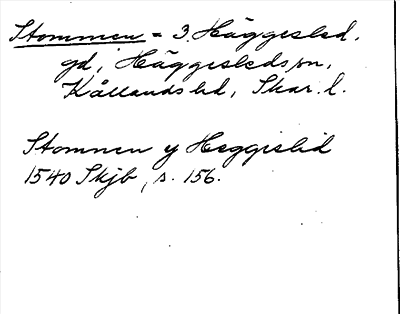 Stommen = 3. Häggesled,
gd, i Häggesleds sn,
Kållands hd, Skar. l.
Stomnen y Heggislid
1540 Skjb, s. 156.